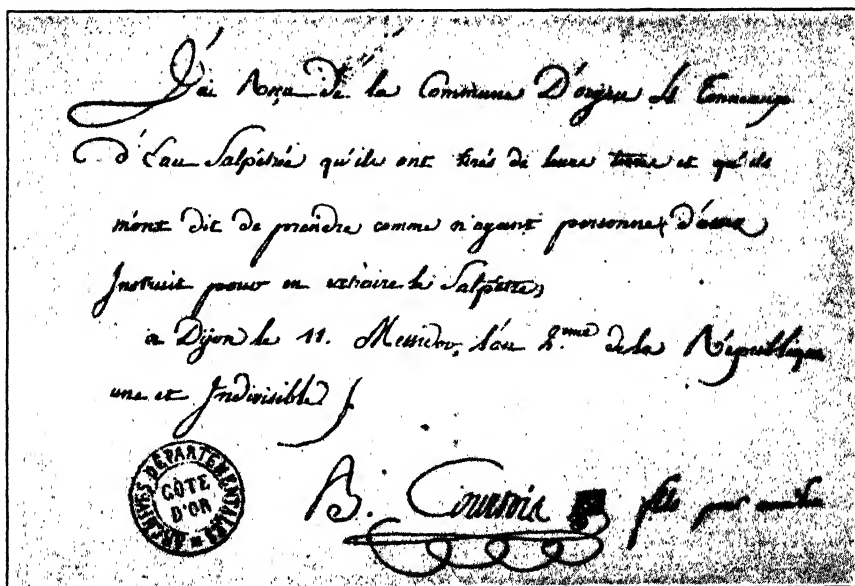 J'ai Reçu de la Commune D'orgeu Les Tonneaux
d'Eau Salpétrée qu'ils ont tirés de leurs terres et qu'ils
m'ont dit de prendre comme n'ayant personne d'assez
Instruit pour en extraire le Salpetre,
a Dijon le 11. Messidor, l'an 2.eme de la République
une et Indivisible
B. Courtois fils
ARCHIVES DÉPARTEMENTALES
CÔTE
D'OR